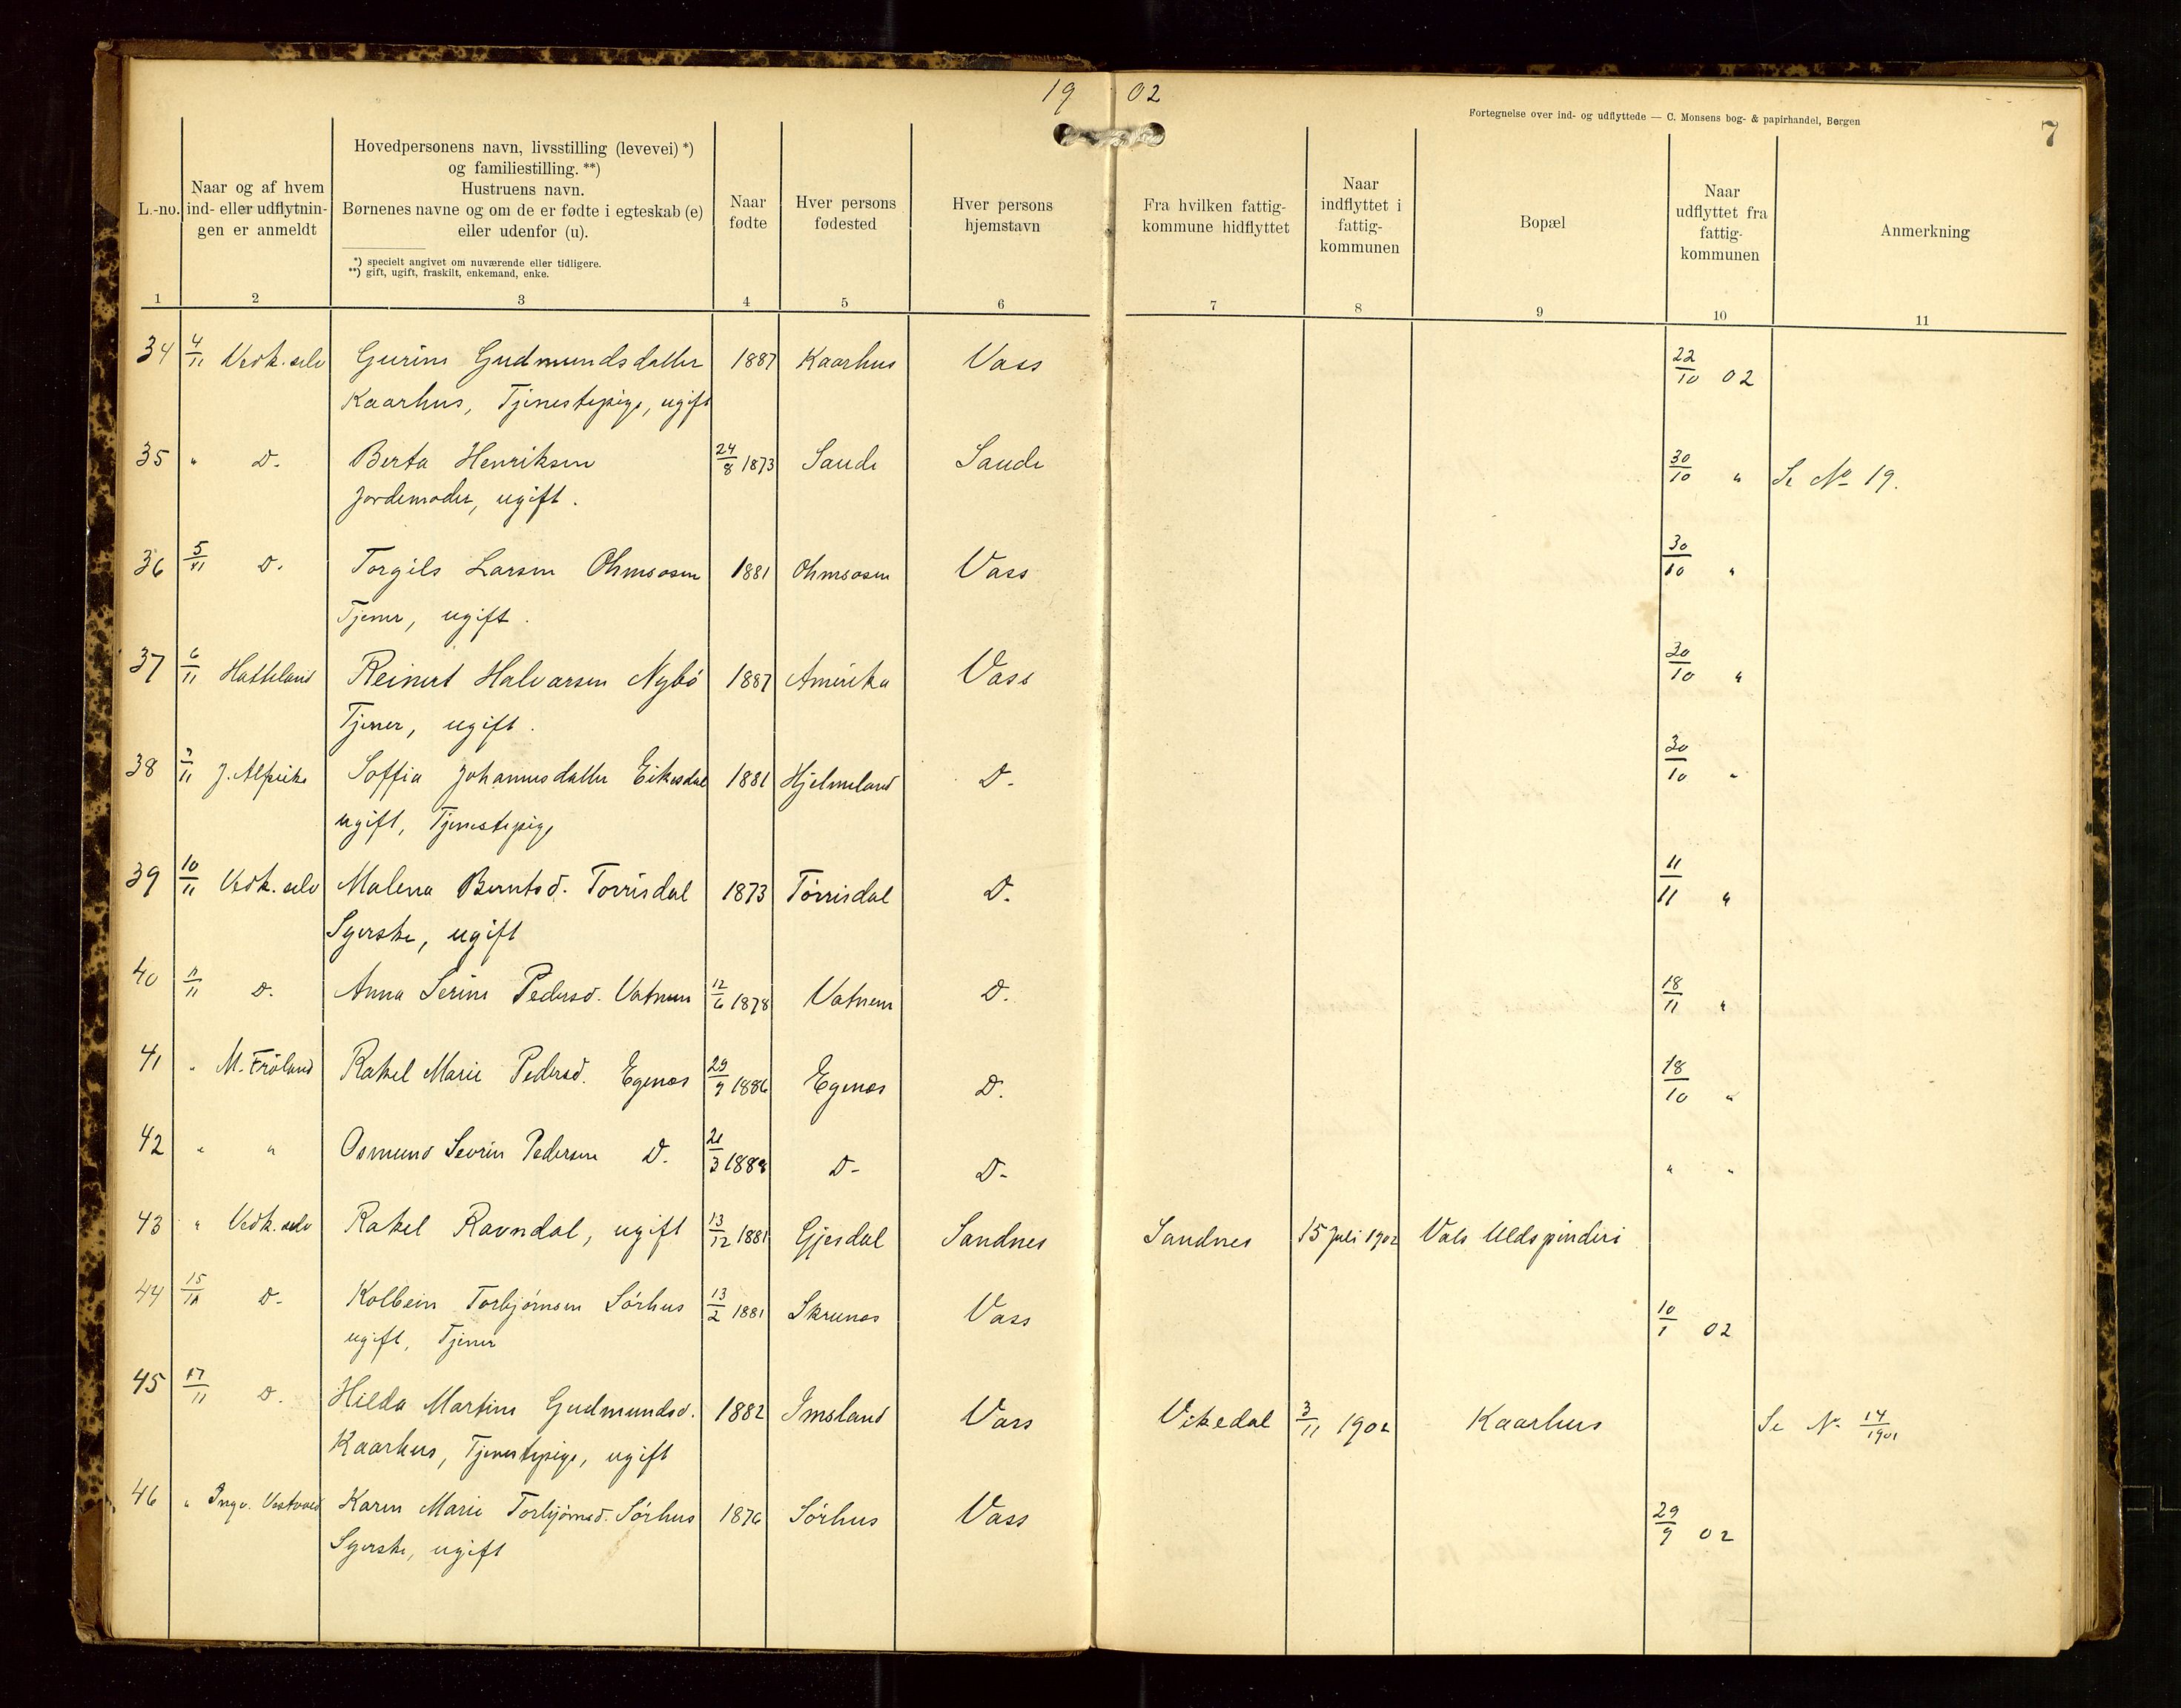 19 02
Fortegnelse over ind- og udflyttede — C. Monsens bog- & papirhandel, Bergen
7
L.-no.
Naar og af hvem
ind- eller udflytnin-
gen er anmeldt
Hovedpersonens navn, livsstilling (levevei) *)
og familiestilling. **)
Hustruens navn.
Børnenes navne og om de er fødte i egteskab (e)
eiler udenfor (u).
*) specielt angivet om nuværende eller tidligere.
**) gift, ugift, fraskilt, enkemand, enke.
Naar
fødte
Hver persons
fødested
Hver persons
hjemstavn
Fra hvilken fattig-
kommune hidflyttet
Naar
indflyttet i
fattig-
kommunen
Bopæl
Naar
udflyttet fra
fattig-
kommunen
Anmerkning
1 2 3 4 5 6 7 8 9 10 11
34 4/11 Vedk. selv Gurine Gudmundsdatter 1887 Kaarhus Vass 22/10 02
Kaarhus, Tjenestepige, ugift
35 " D. Berta Henriksen 24/8 1873 Saude Saude 30/10 " Se No 19.
Jordemoder, ugift.
36 5/11 D. Torgils Larsen Ohmsosen 1881 Ohmsosen Vass 30/10 "
Tjener, ugift.
37 6/11 Hatteland Reinert Halvarsen Nybö 1887 Amerika Vass 30/10 "
Tjener, ugift.
38 7/11 J. Soffia Johannesdatter Eikesdal 1881 Hjelmeland D. 30/10 "
ugift, Tjenestepige
39 10/11 Vedk. selv Malena Berntsd. Torrisdal 1873 Torrisdal D. 11/11 "
Syerske, ugift
40 11/11 D. Anna Serine Pedersd. Vatnem 12/6 1878 Vatnem D. 18/11 "
41 " M. Fröland Rakel Marie Pedersd. Egenæs 29/9 1886 Egenæs D. 18/10 "
42 " " Osmund Sevrin Pedersen D. 21/3 1888 D- D- " "
43 " Vedk. selv Rakel Ravndal, ugift 13/12 1881 Gjesdal Sandnes Sandnes 15 Juli 1902 Vals Uldspinderi
44 15/11 D. Kolbein Torbjörnsen Sörhus 13/2 1881 Skrunes Vass 10/1 02
ugift, Tjener
45 17/11 D. Hilda Martine Gudmundsd. 1882 Imsland Vass Vikedal 3/11 1902 Kaarhus Se No 14/1901
Kaarhus, Tjenestepige, ugift
46 " Ingv. Karen Marie Torbjörnsd. Sörhus 1876 Sörhus Vass 29/9 02
Syerske, ugift